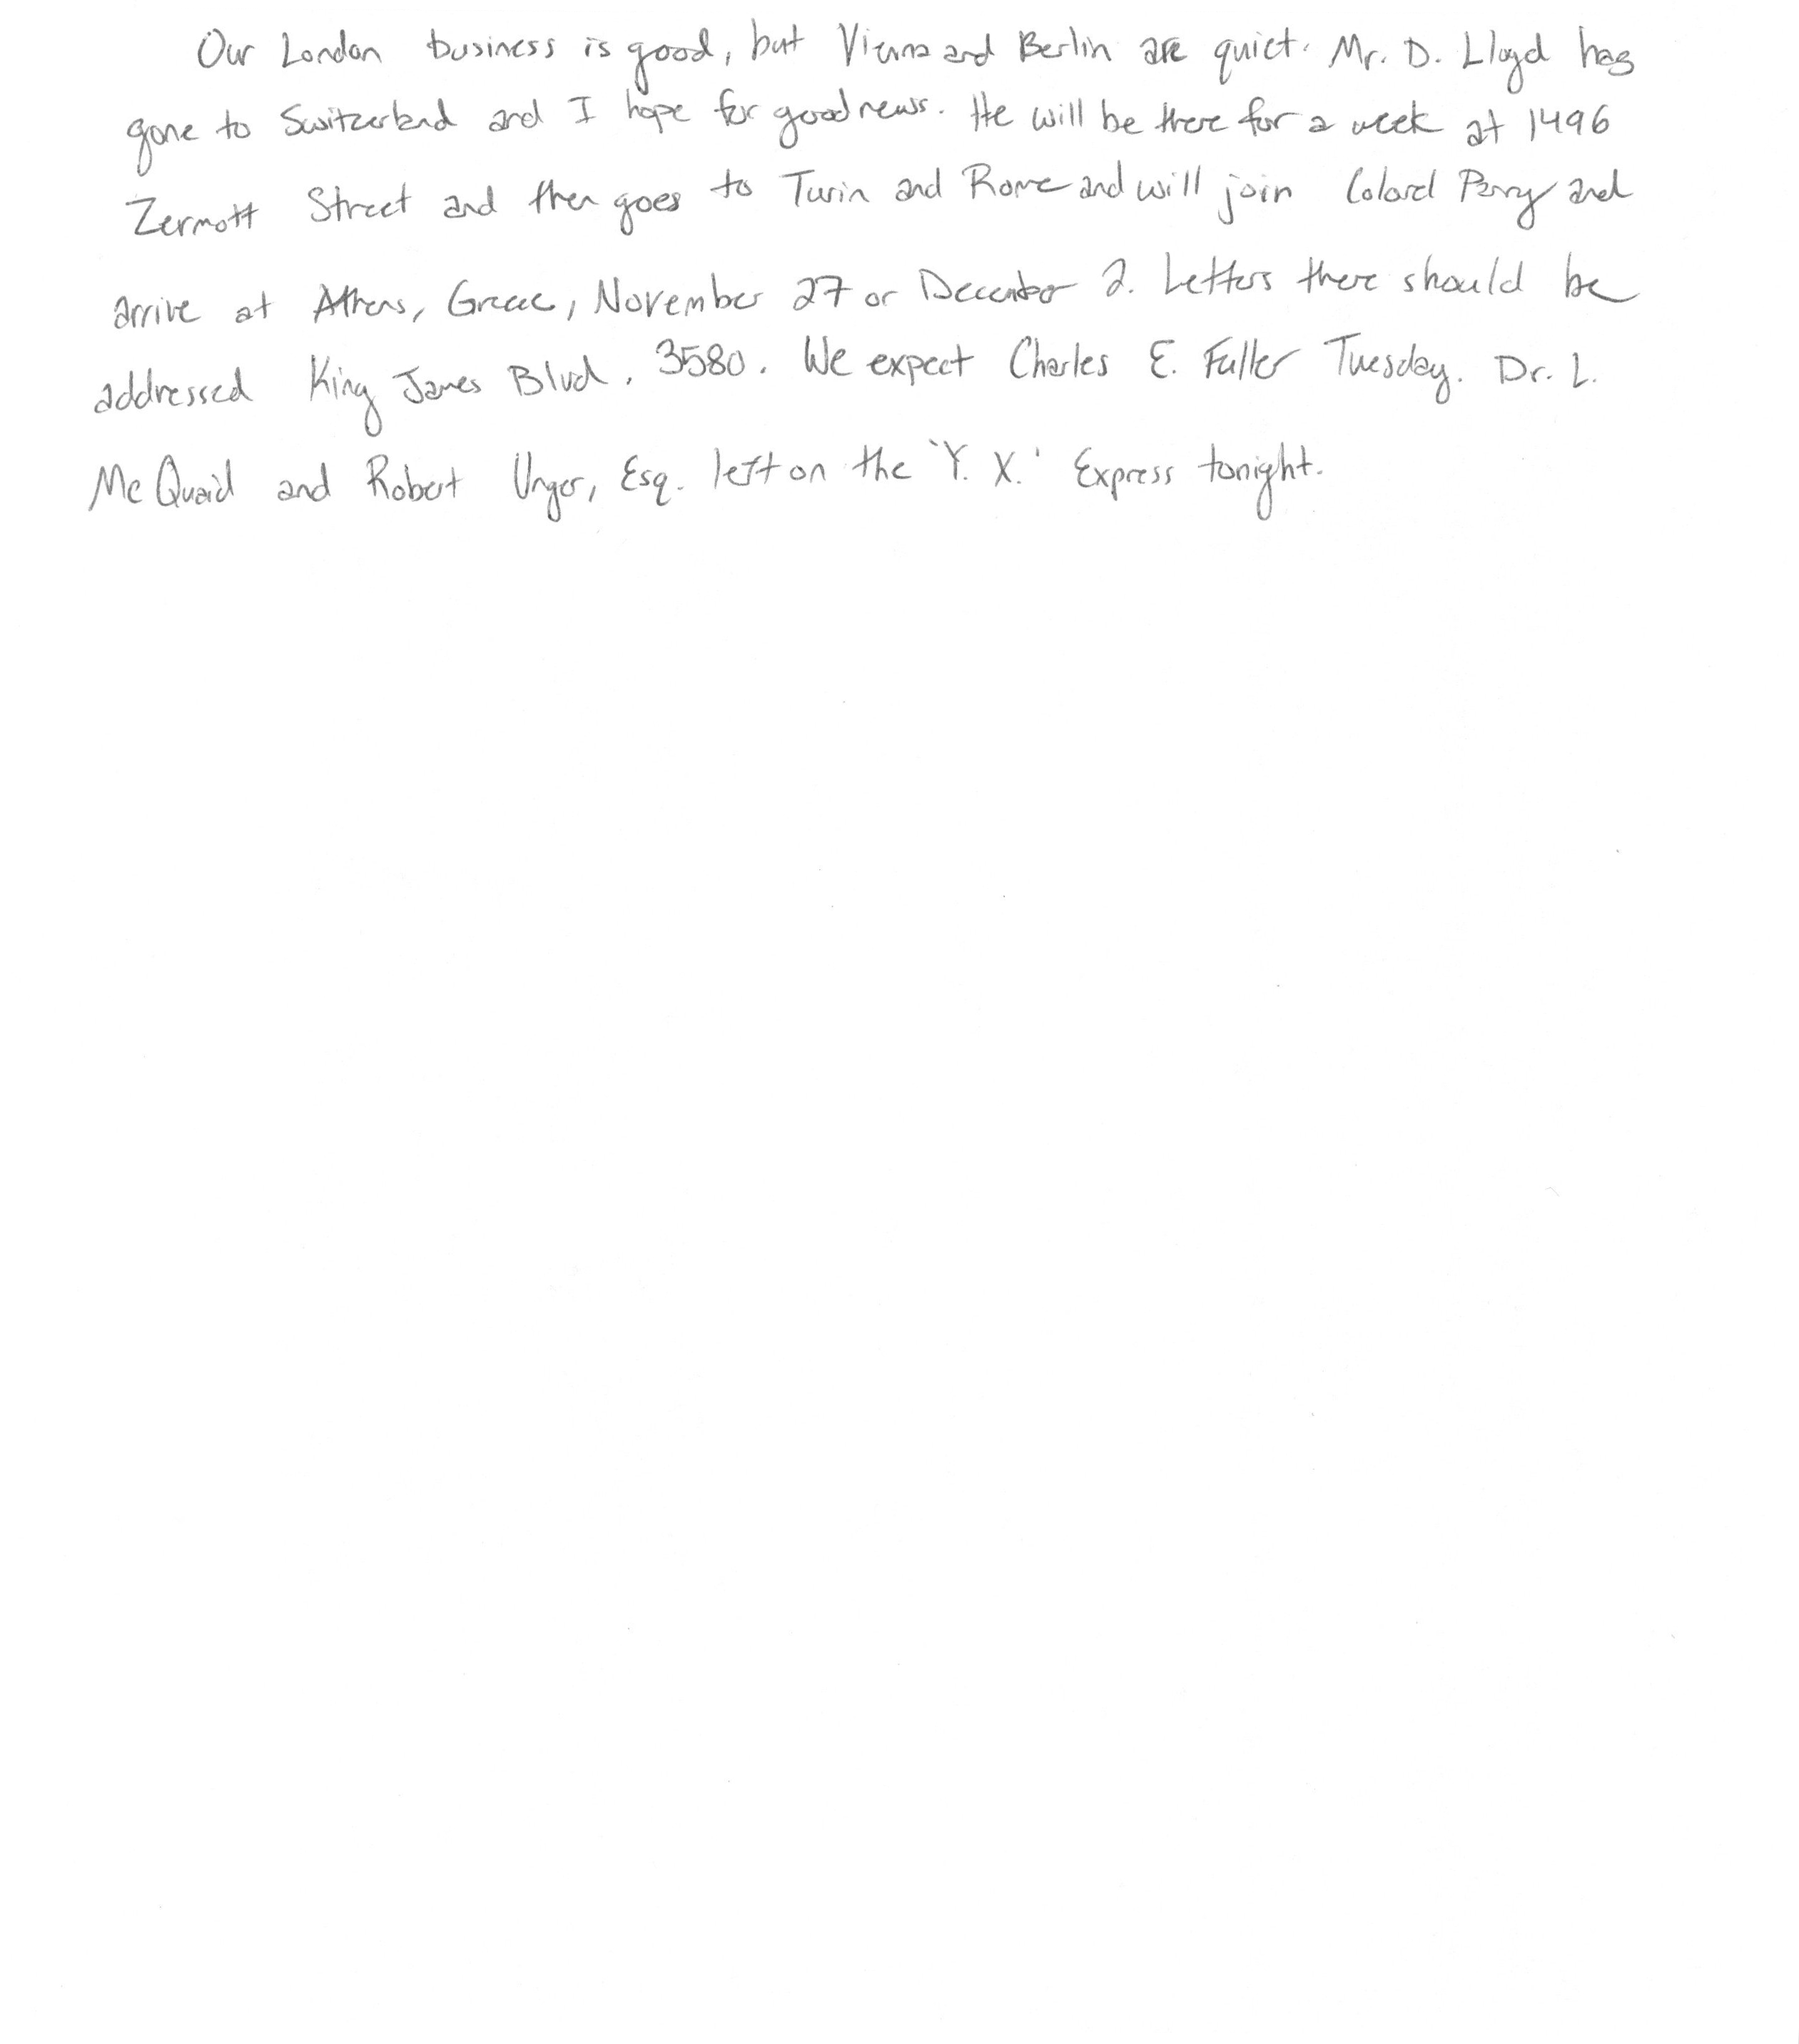 Our London business is good, but Vienna and Berlin are quiet. Mr. D. Lloyd has
gone to Switzerland and I hope for good news. He will be there for a week at 1496
Zermott Street and then goes to Turin and Rome and will join Colonel Parry and
arrive at Athens, Greece, November 27 or December 2. Letters there should be
addressed King James Blvd. 3580. We expect Charles E. Fuller Tuesday. Dr. L.
McQuaid and Robert Unger, Esq. left on the 'Y. X.' Express tonight.